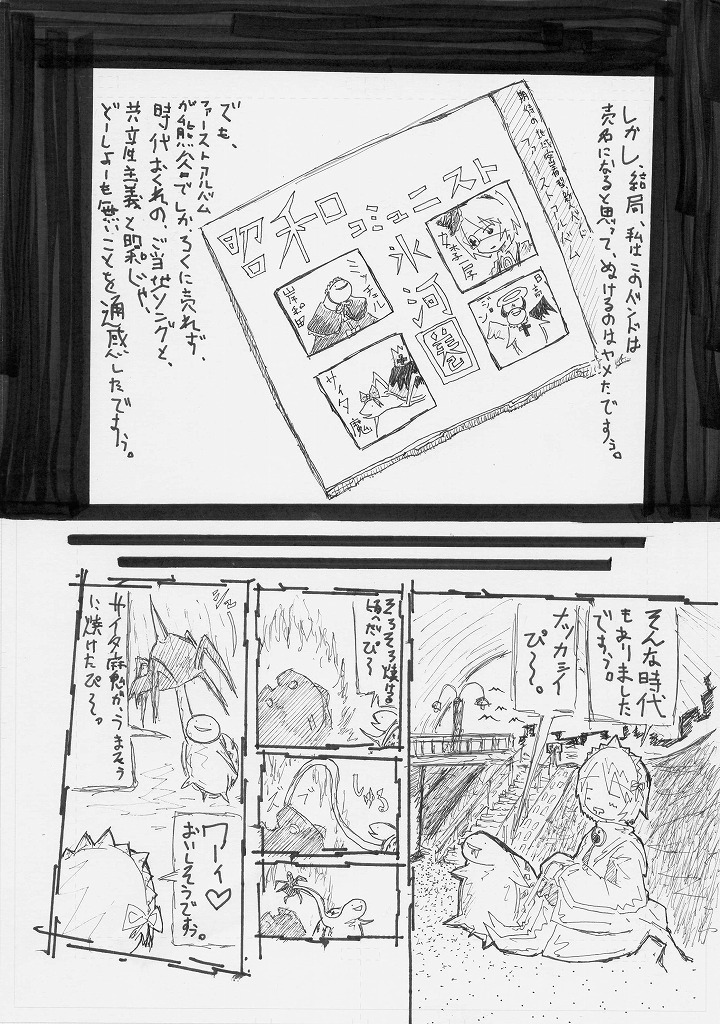 しかし、結局、私はこのバンドは
売名になると思って、ぬけるのはヤメたですぅ。
ファーストアルバム
昭和コミュニスト
氷河
女李屋
日吉
ジョン
ミッチェル
岸和田
サイタ魔
でも、
ファーストアルバム
が熊谷でしか、ろくに売れず、
時代おくれの、ご当地ソングと、
共立性主義と昭和じゃ、
どーしよーも無いことを通感したですぅ。
そんな時代
もありました
ですぅ。
ナッカシイ
ぴ〜。
そろそろ焼ける
ぴ〜
しゅる
サイタ魔が、うまそう
に焼けたぴ〜っ
ワーイ♡
おいしそうですぅ。